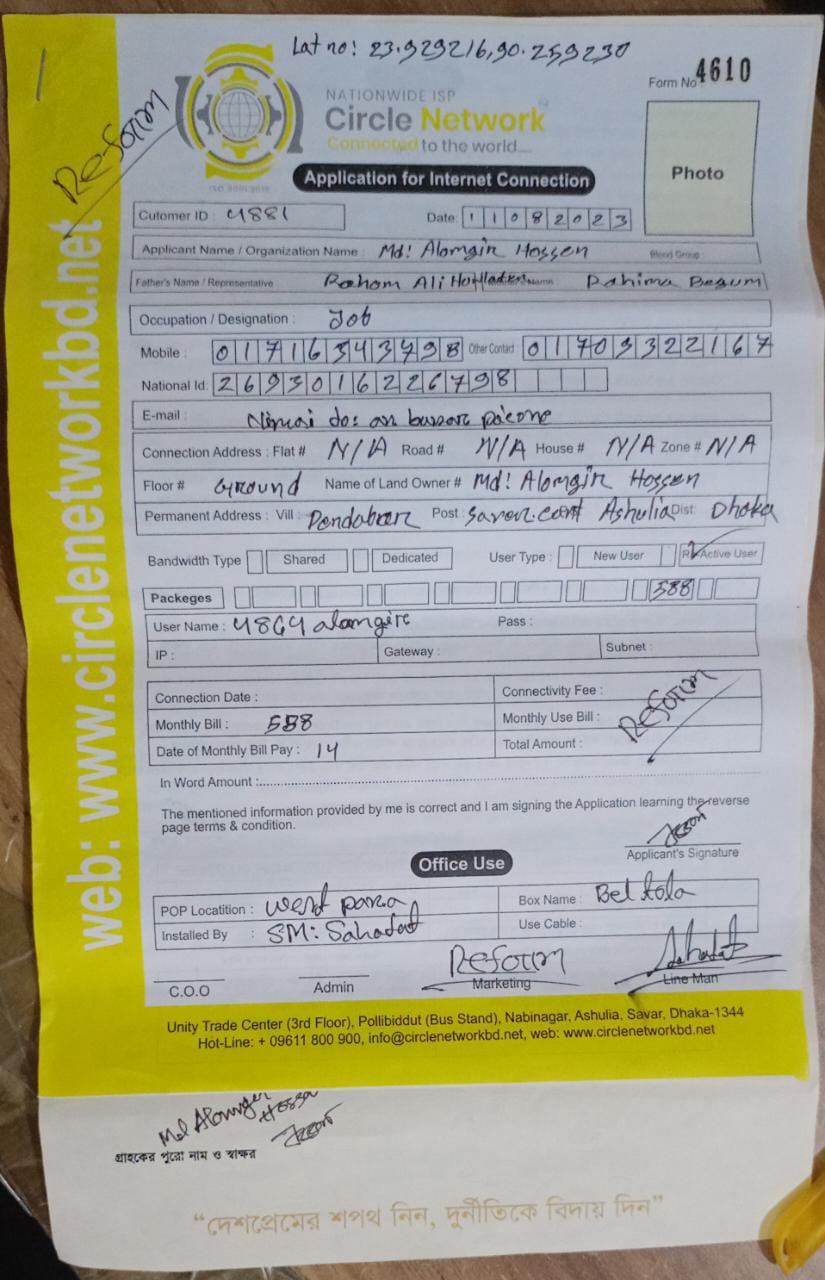 Lat no: 23.929216,90.259230
Form No 4610
Reform
NATIONWIDE ISP
Circle Network
Connected to the world....
ISO 9001:2015
Photo
Application for Internet Connection
Cutomer ID : 4881 Date: 11082023
Applicant Name / Organization Name : Md! Alomgir Hossen Blood Group :
Father's Name / Representative Rahom Ali Name Rahima Begum
Occupation / Designation : Job
Mobile : 01716343798 Other Contact 01709322167
National Id: 2693016226798
E-mail :
Connection Address : Flat # N/A Road # N/A House # N/A Zone # N/A
Floor # Ground Name of Land Owner # Md! Alomgir Hossen
Permanent Address : Vill : Post : Ashulia Dist: Dhoka
Bandwidth Type Shared Dedicated User Type : New User Active User
Packeges 588
User Name : Pass :
IP : Gateway : Subnet :
Connection Date : Connectivity Fee :
Monthly Bill : 588 Monthly Use Bill :
Date of Monthly Bill Pay : 14 Total Amount :
Reform
In Word Amount :
The mentioned information provided by me is correct and I am signing the Application learning the reverse
page terms & condition.
Applicant's Signature
Office Use
POP Locatition : west para Box Name : Bel tola
Installed By : SM: Sahadat Use Cable :
Reform Sahadat
C.O.O Admin Marketing Line Man
Unity Trade Center (3rd Floor), Pollibiddut (Bus Stand), Nabinagar, Ashulia, Savar, Dhaka-1344
Hot-Line: + 09611 800 900, info@circlenetworkbd.net, web: www.circlenetworkbd.net
web: www.circlenetworkbd.net
Md Alomger Hossa
গ্রাহকের পুরো নাম ও স্বাক্ষর
“দেশপ্রেমের শপথ নিন, দুর্নীতিকে বিদায় দিন”